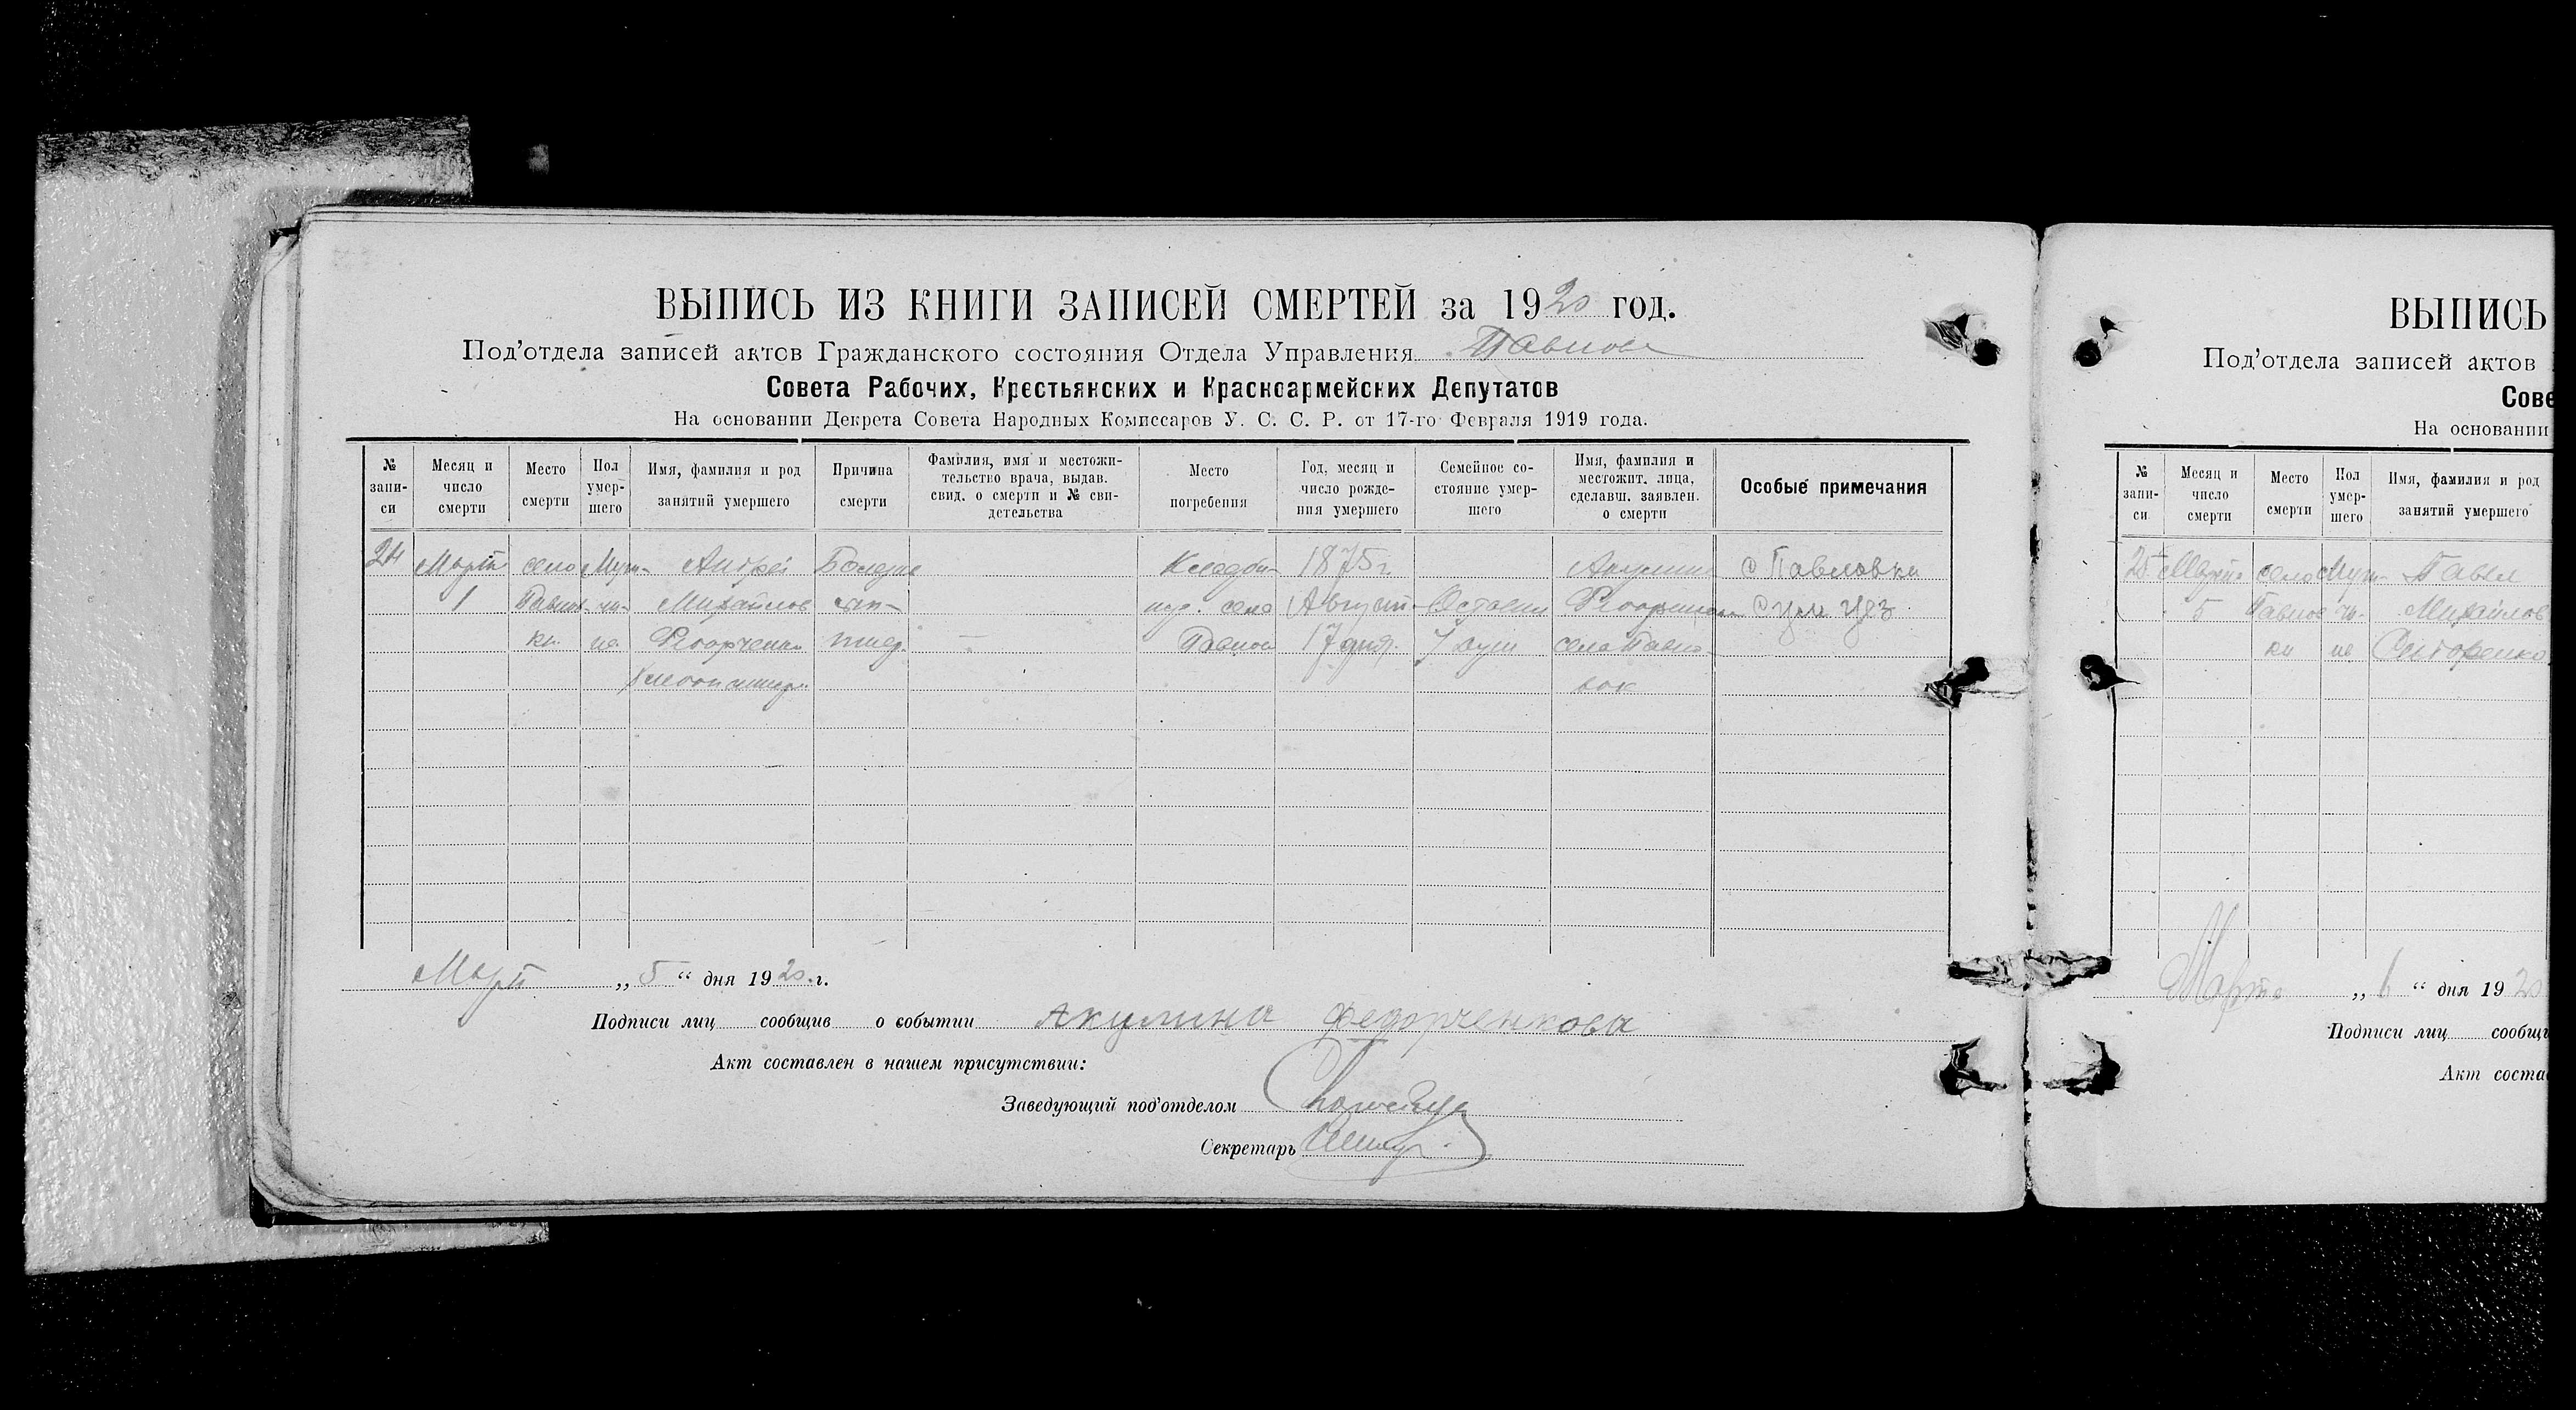 ВЫПИСЬ ИЗ КНИГИ ЗАПИСЕЙ СМЕРТЕЙ за 1920 год.
Под'отдела записей актов Гражданского состояния Отдела Управления
Совета Рабочих, Крестьянских и Красноармейских Депутатов
На основании Декрета Совета Народных Комиссаров У. С. С. Р. от 17-го Февраля 1919 года.
№ запи-си
Месяц и число смерти
Место смерти
Пол умер-шего
Имя, фамилия и род занятий умершего
Причина смерти
Фамилия, имя и местожи-тельство врача, выдав. свид. о смерти и № сви-детельства
Место погребения
Год, месяц и число рожде-ния умершего
Семейное со-стояние умер-шего
Имя, фамилия и местожит. лица, сделавш. заявлен. о смерти
Особые примечания
24 Март село Муж- Андрей Кладби- 1875 г. Акулина с Павловки
1 Павлов- чи- Михайлов село Август- Федорченкова
ки на Федорченко Павлов 17 дня. 7 душ села Павло-
вок
Март „ 5 “ дня 1920 г.
Подписи лиц сообщив о событии Акулина Федорченкова
Акт составлен в нашем присутствии:
Заведующий под'отделом
Секретарь
ВЫПИСЬ
Под'отдела записей актов
Сове
На основании
№ запи-си
Месяц и число смерти
Место смерти
Пол умер-шего
Имя, фамилия и род занятий умершего
25 Март село Муж- Павел
5 Павлов чи- Михайлов
ки на Сидоренко
Марта „ 6 “ дня 1920
Подписи лиц сообщи
Акт соста